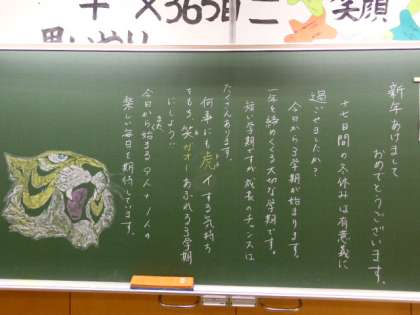 十 ×365日=
笑顔
思いやり
新年あけまして
おめでとうございます。
十七日間の冬休みは有意義に
過ごせましたか?
今日から3学期が始まります。
一年を締めくくる大切な学期です。
短い学期ですが成長のチャンスは
たくさんあります。
何事にも虎イする気持ち
でもう、笑ガオーあふれる3学期
にしよう!
今日からまた始まる9人+1人の
楽しい毎日を期待してます。